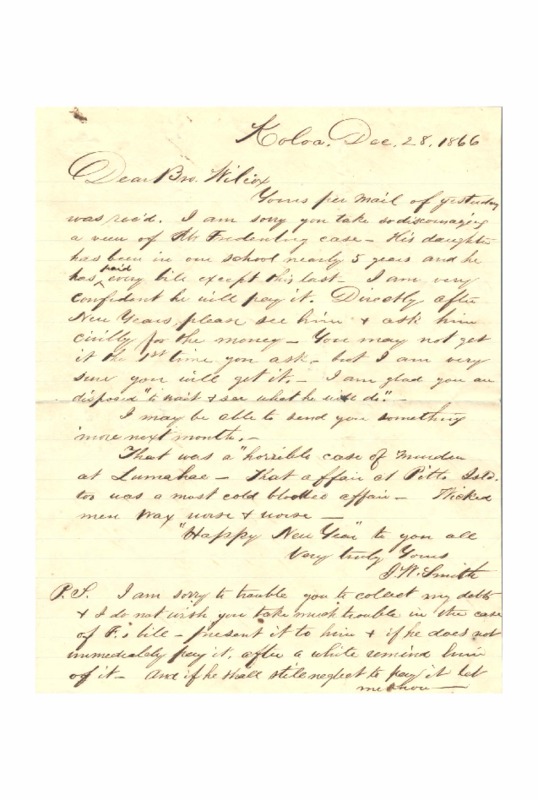 Koloa. Dec. 28, 1866
Dear Bro. Wilcox
Yours per mail of yesterday
was rec'd. I am sorry you take so discouraging
a view of Mr Fredenburg case - His daughter
has been in our school nearly 5 years and he
has paid every bill except this last - I am very
confident he will pay it. Directly after
New Years, please see him & ask him
civilly for the money - You may not get
it the 1st time you ask - but I am very
sure you will get it. - I am glad you are
disposed "to wait & see what he will do" -
I may be able to send you something
more next month. -
That was a "horrible case of murder
at Lumahae - That affair at Pitts Isld.
too was a most cold blooded affair - Wicked
men wax worse & worse -
"Happy New Year" to you all
Very truly Yours
J. W. Smith
P.S. I am sorry to trouble you to collect my debts
& I do not wish you take much trouble in the case
of F.'s bill - present it to him & if he does not
immediately pay it, after a while remind him
of it - And if he shall still neglect to pay it let
me know -